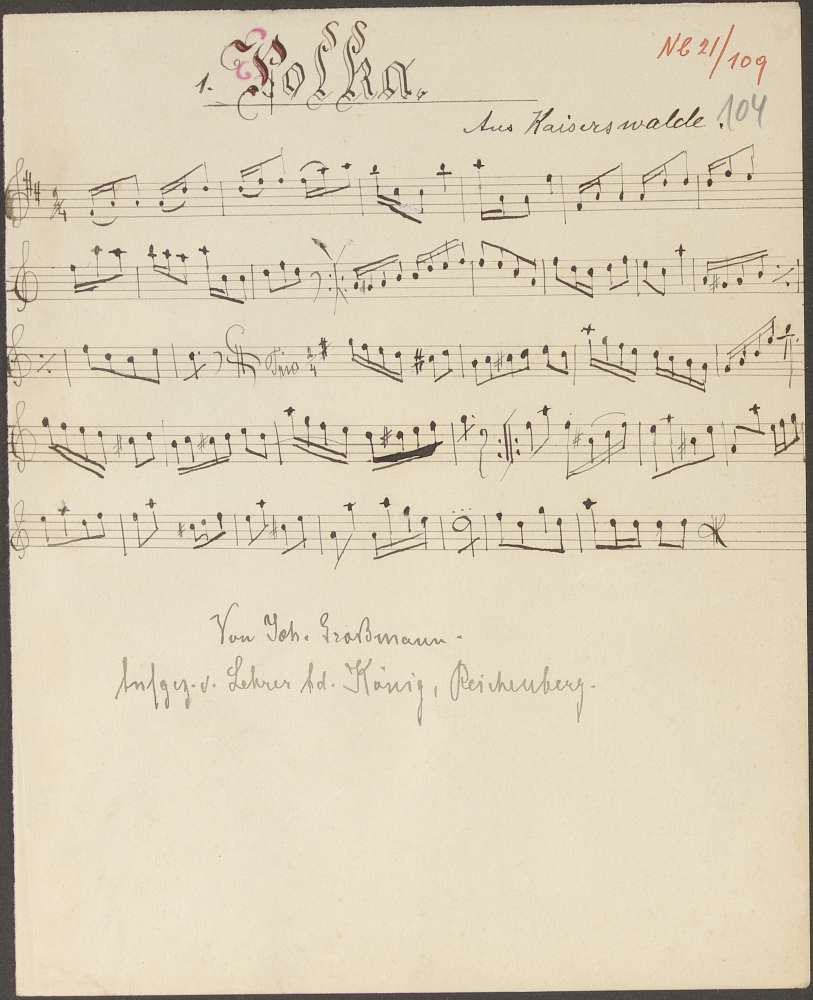 NB 21/109
1. Polka.
104
Aus Kaiserswalde.
2/4
Trio 2/4
Von Joh. Großmann.
Aufgez. v. Lehrer Ad. König, Reichenberg.